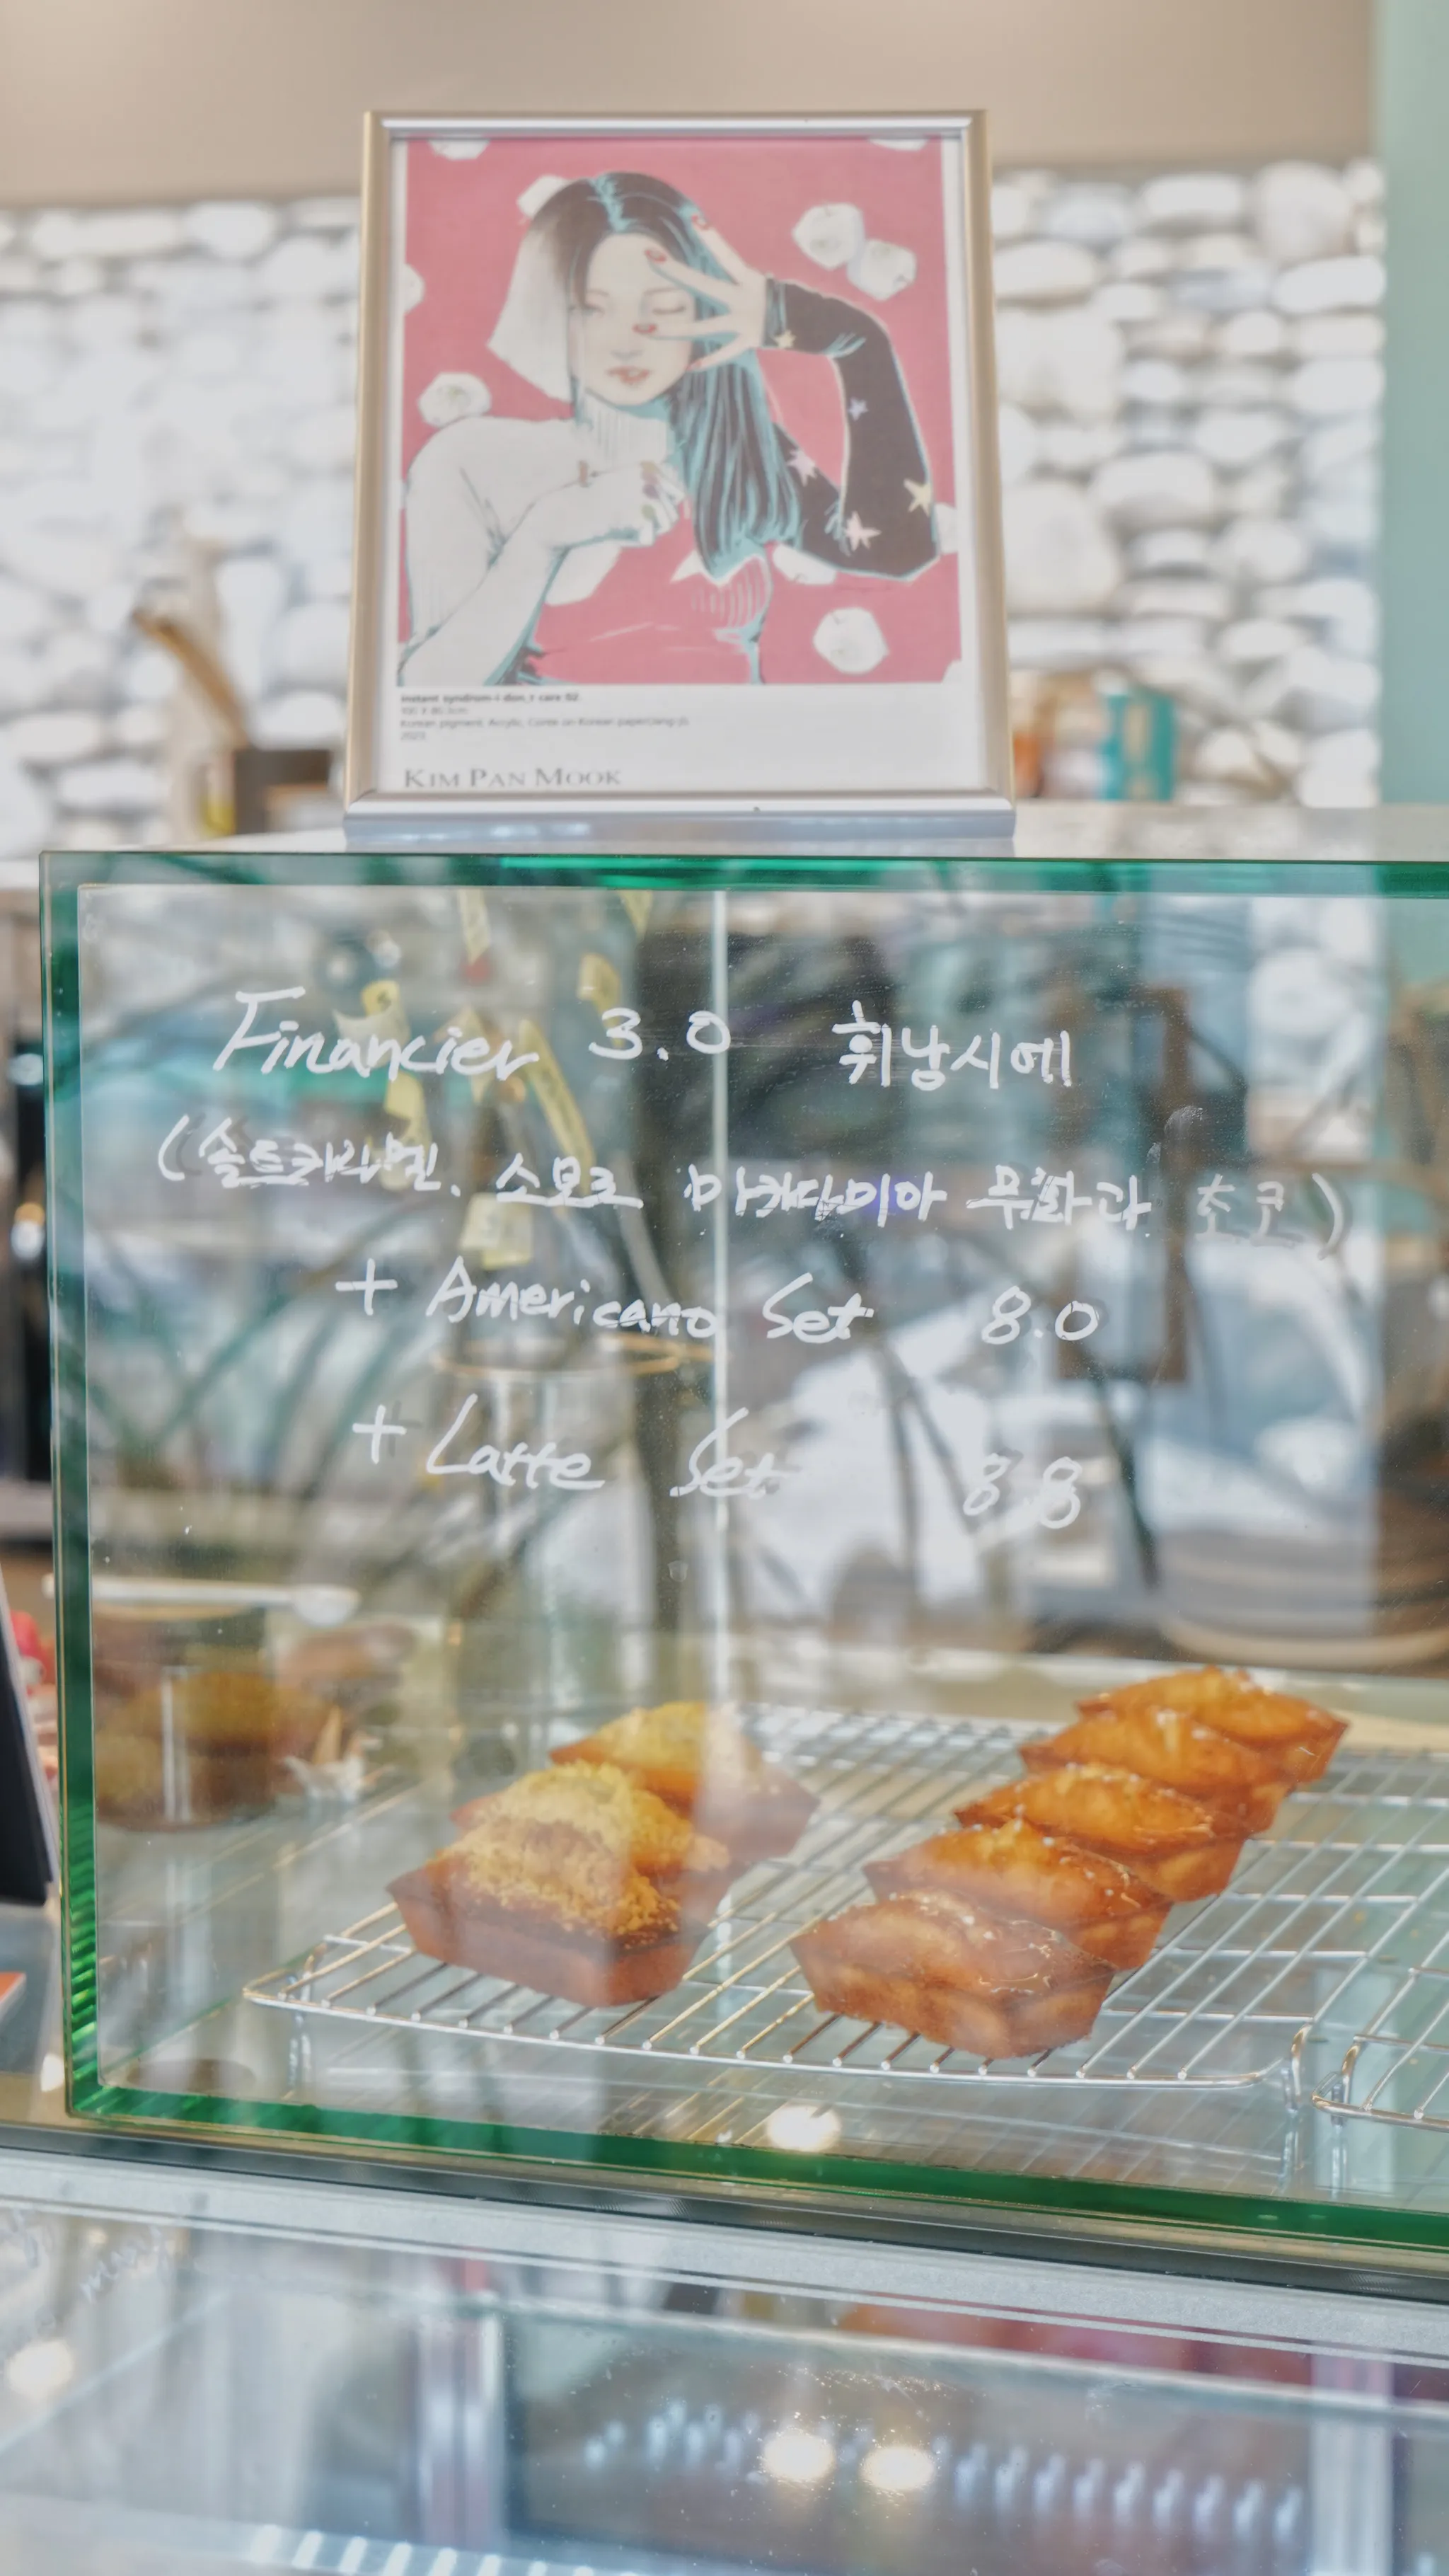 Instant syndrom-I don,t care 02.
100 X 80.3cm
Korean pigment, Acrylic, Conte on Korean paper(Jang-ji)
2023
KIM PAN MOOK
Financier 3.0 휘낭시에
(솔트카라멜. 소보로 마카다미아 무화과. 초코)
+ Americano Set 8.0
+ Latte Set 8.8